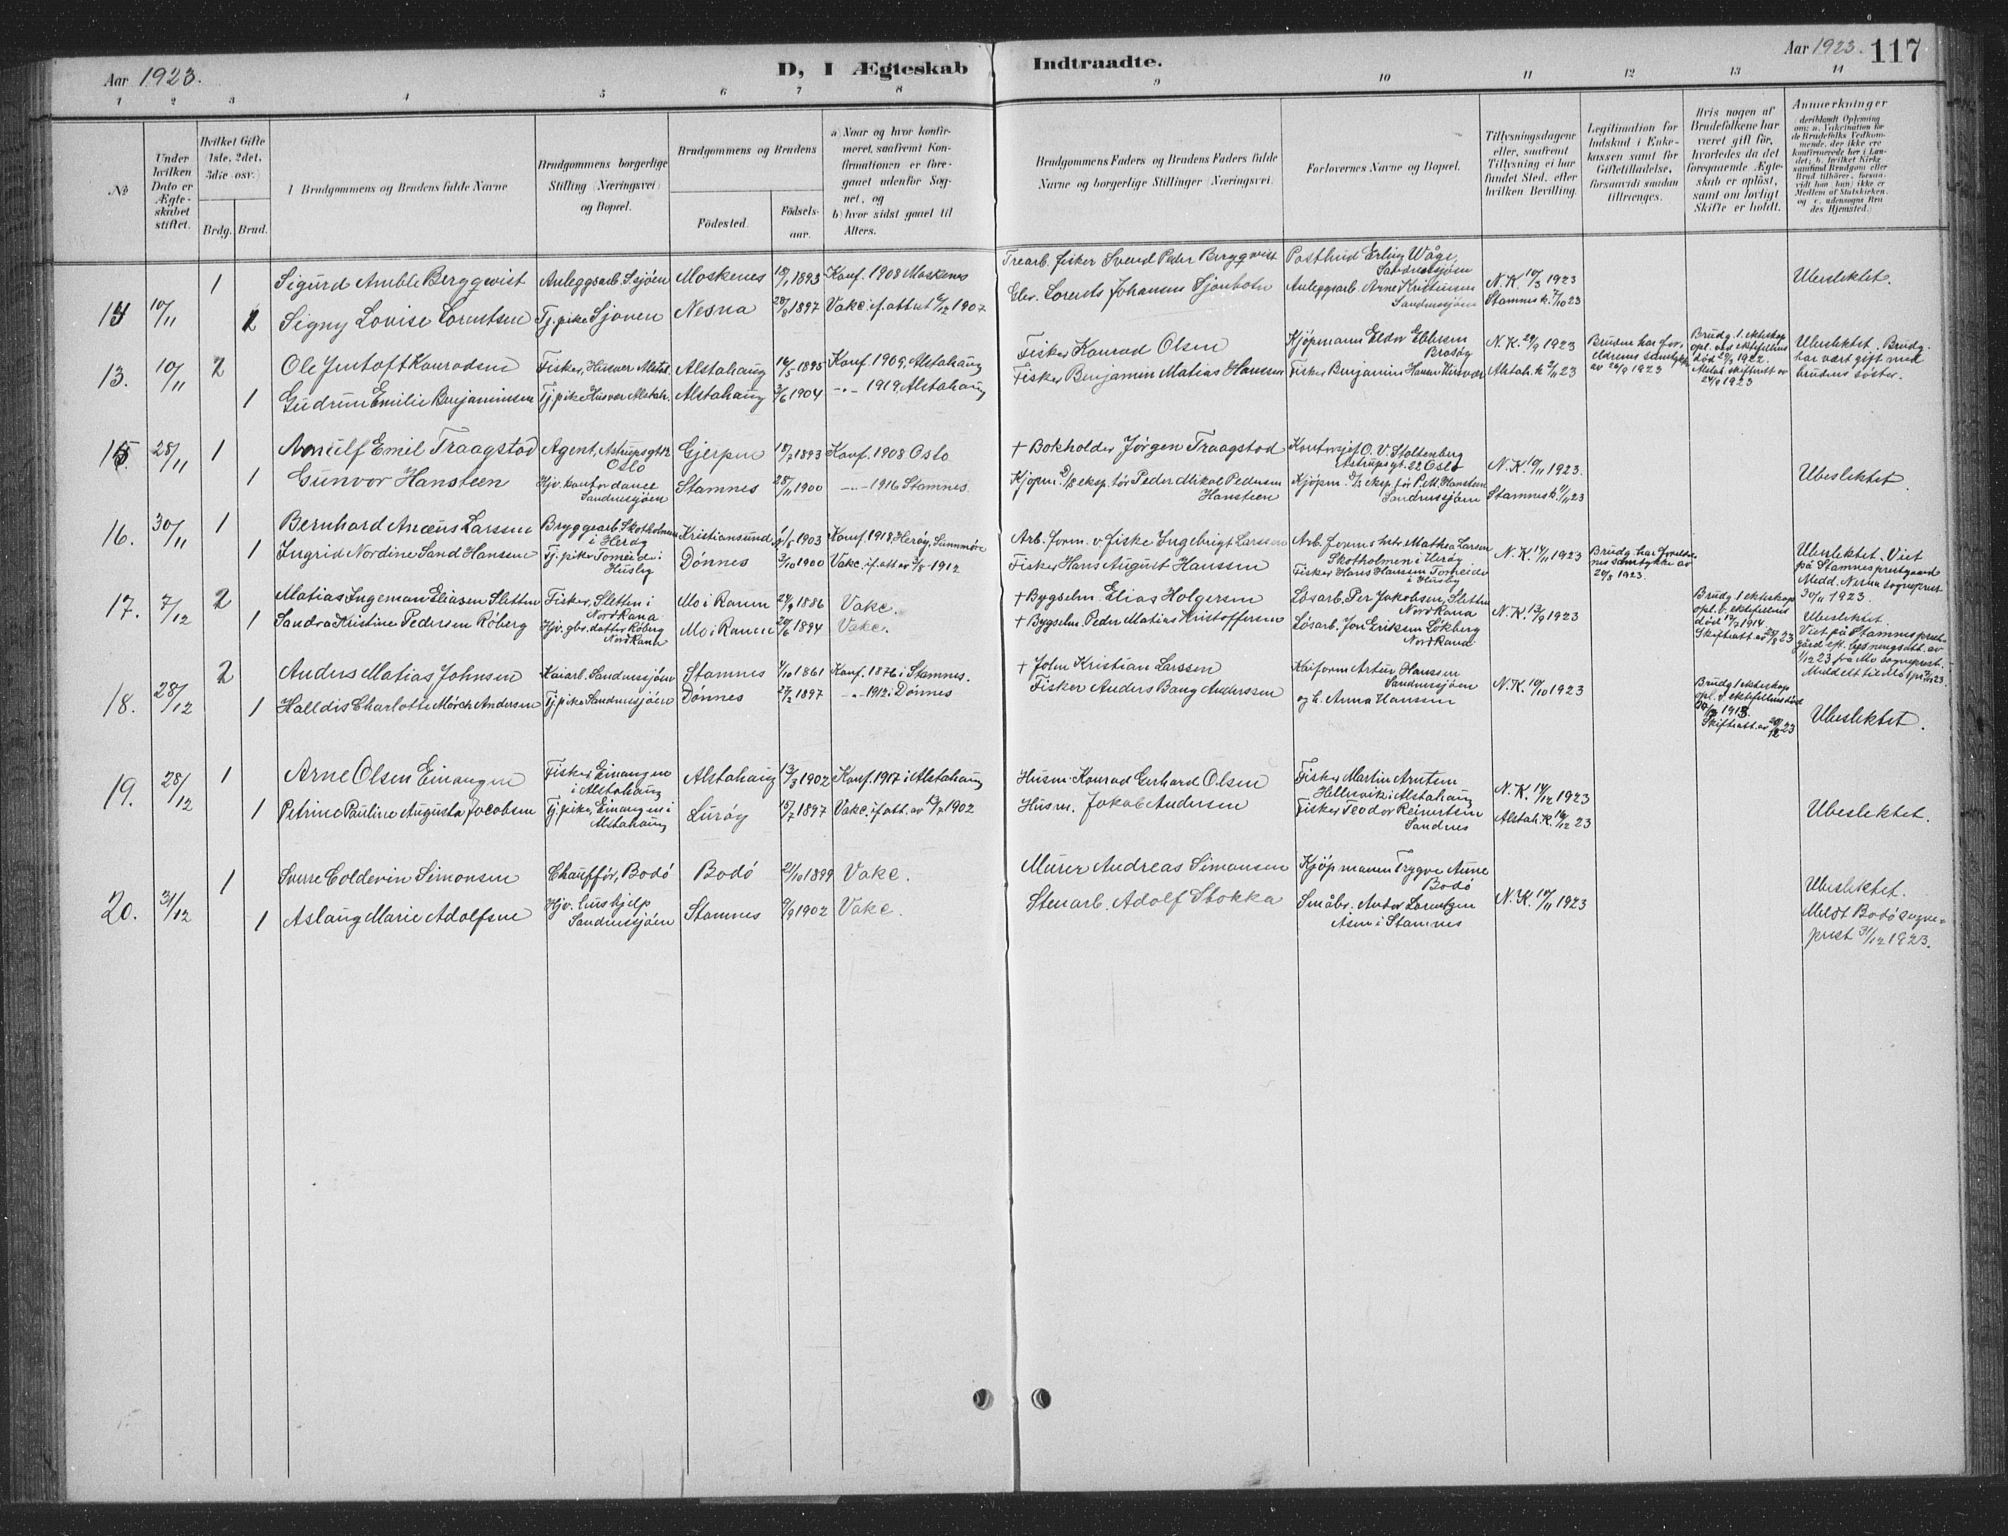 Aar 1923.
D, I Ægteskab Indtraadte.
Aar 1923. 117
1 2 3 4 5 6 7 8 9 10 11 12 13 14
№
Under hvilken Dato er Ægteskabet stiftet.
Hvilket Gifte 1ste, 2det, 3die osv.)
Brdg. Brud.
Brudgommens og Brudens fulde Navne
Brudgommens borgerlige Stilling (Næringsvei) og Bopæl.
Brudgommens og Brudens
Födested. Födsels-aar.
a) Naar og hvor konfirmeret, saafremt Konfirmationen er foregaaet udenfor Sognet, og
b) hvor sidst gaaet til Alters.
Brudgommens Faders og Brudens Faders fulde Navne og borgerlige Stillinger (Næringsvei).
Forlovernes Navne og Bopæl.
Tillysningsdagene eller, saafremt Tillysning ei har fundet Sted, efter hvilken Bevilling.
Legitimation for Indskud i Enkekassen samt for Giftetilladelse, forsaavidt saadan tiltrænges.
Hvis nogen af Brudefolkene har været gift før, hvorledes da det foregaaende Ægteskab er opløst, samt om lovligt Skifte er holdt.
Anmerkninger
14 10/11 1 Sigurd Amble Bergqvist Anleggsarb. S.sjøen Moskenes 18/1 1893 Konf. 1908 Moskenes Trearb. fisker Svend Peder Bergqvist Postbud Erling Wåge, Sandnessjøen N.K. 10/3 1923 Ubeslektet.
2 Signy Lovise Lorentsen Tj.pike Sjonen Nesna 28/9 1897 Vakc. if. attest 6/12 1907 Gbr. Lorents Johansen Sjonbotn Anleggsarb. Arne Kristensen Sandnessjøen Stamnes k. 7/10 23
13. 10/11 2 Ole Jentoft Konradsen Fisker, Husvær Alstah. Alstahaug 16/5 1895 Konf. 1909, Alstahaug Fisker Konrad Olsen Kjøpmann Eldor Ebbesen Brasøy N.K. 29/9 1923 Bruden har foreldrenes samtykke av 26/9 1923 Brudg. 1. ekteskap opl. ved ektefellens død 20/9 1922. Alstah. skifterett av 24/9 1923 Ubeslektet. Brudg. har vært gift med brudens søster.
1 Gudrun Emilie Benjaminsen Tj.pike Husvær Alstah. Alstahaug 3/6 1904 -"- 1919, Alstahaug Fisker Benjamin Matias Hanssen Fisker Benjamin Hansen Husvær Alstah. k. 2/11 23
15. 28/11 1 Arnulf Emil Traagstad Agent, Astrupsgt. 12 Oslo Gjerpen 18/7 1893 Konf. 1908 Oslo + Bokholder Jørgen Traagstad Kontorsjef O.V. Stoltenberg Astrupsgt. 22 Oslo N.K. 10/11 1923.
1 Gunvor Hansteen Hjv. kontordame Sandnessjøen Stamnes 28/11 1900 -"- 1916 Stamnes. Kjøpm. D/S eksp.før Peder Mikal Pedersen Hansteen Kjøpm. D/S eksp.før P.M. Hansteen Sandnessjøen Stamnes k. 11/11 23 Ubeslektet.
16. 30/11 1 Bernhard Anæus Larssen Bryggearb. Skotholmen i Herøy Kristiansund 1903 Konf. 1918, Herøy, Sunnmøre Arb. form. v. fiske Ingebrigt Larssen Arb. form.s hstr. Mathea Larsen Skotholmen i Herøy N.K. 14/11 1923 Brudg. har foreldrenes samtykke av 20/9 1923. Ubeslektet. Viet på Stamnes prestgaard Medd. Nesna sogneprest 30/11 1923.
1 Ingrid Nordine Sand Hanssen Tj.pike Tomeide i Husby Dønnes 3/10 1900 Vakc. if. att. av 5/8 1912 Fisker Hans August Hanssen Fisker Hans Hanssen Tomeide i Husby
17. 7/12 2 Matias Ingeman Eliasen Sletten Fisker, Sletten i Nordrana Mo i Ranen 24/9 1886 Vakc. + Bygselm. Elias Holgersen Løsarb. Per Jakobsen, Sletten Nordrana N.K. 13/9 1923 Brudg 1 ekteskap opl. v. ektefellens død 17/9 1914 Skifteatt. av 28/8 23 Ubeslektet. Viet på Stamnes prestgård eft. lysningsatt. av 1/12 23 fra Mo sogneprest. Meddelt til Mo spr. 7/12 23.
1 Sandra Kristine Pedersen Røberg Hjv. gbr.datter Røberg Nordrana Mo i Ranen 20/6 1894 Vakc. + Bygselm Peder Matias Kristoffersen Løsarb. Jon Eriksen Løkberg Nordrana
18. 28/12 2 Anders Matias Johnsen Kaiarb. Sandnessjøen Stamnes 4/10 1861 Konf. 1876 i Stamnes. + John Kristian Larssen Kaiform Artur Hanssen Sandnessjøen N.K. 10/10 1923 Brudg 1 ekteskap opl. v. ektefellens død 1913. Skifteatt. av 20/12 23 Ubeslektet.
1 Halldis Charlotte Mörch Andersen Tj.pike Sandnessjøen Dønnes 27/2 1897 -"- 1912. Dønnes Fisker Anders Bang Anderssen og h. Anna Hanssen
19. 28/12 1 Arne Olsen Einangen Fisker, Einangen i Alstahaug Alstahaug 13/3 1902 Konf. 1917 i Alstahaug Husm. Konrad Gerhard Olsen Fisker Martin Arntsen Hellesvik i Alstahaug N.K. 14/12 1923
1 Petrine Pauline Augusta Jacobsen Tj.pike, Einangen i Alstahaug Lurøy 15/7 1897 Vakc. if. att. av 1902 Husm. Jakob Andersen Fisker Teodor Reinertsen Sandnes Alstah. K. 16/12 23 Ubeslektet.
20. 31/12 1 Sverre Coldevin Simonsen Chauffør, Bodø Bodø 21/10 1899 Vakc. Murer Andreas Simonsen Kjøpmann Trygve Aune Bodø N.K. 17/11 1923 Ubeslektet. Meldt Bodø sogneprest 31/12 1923.
1 Aslaug Marie Adolfsen Hjv. hushjelp Sandnessjøen Stamnes 9/9 1902 Vakc. Stenarb. Adolf Stokka Småbr. Andor Lorentzen Åsen i Stamnes